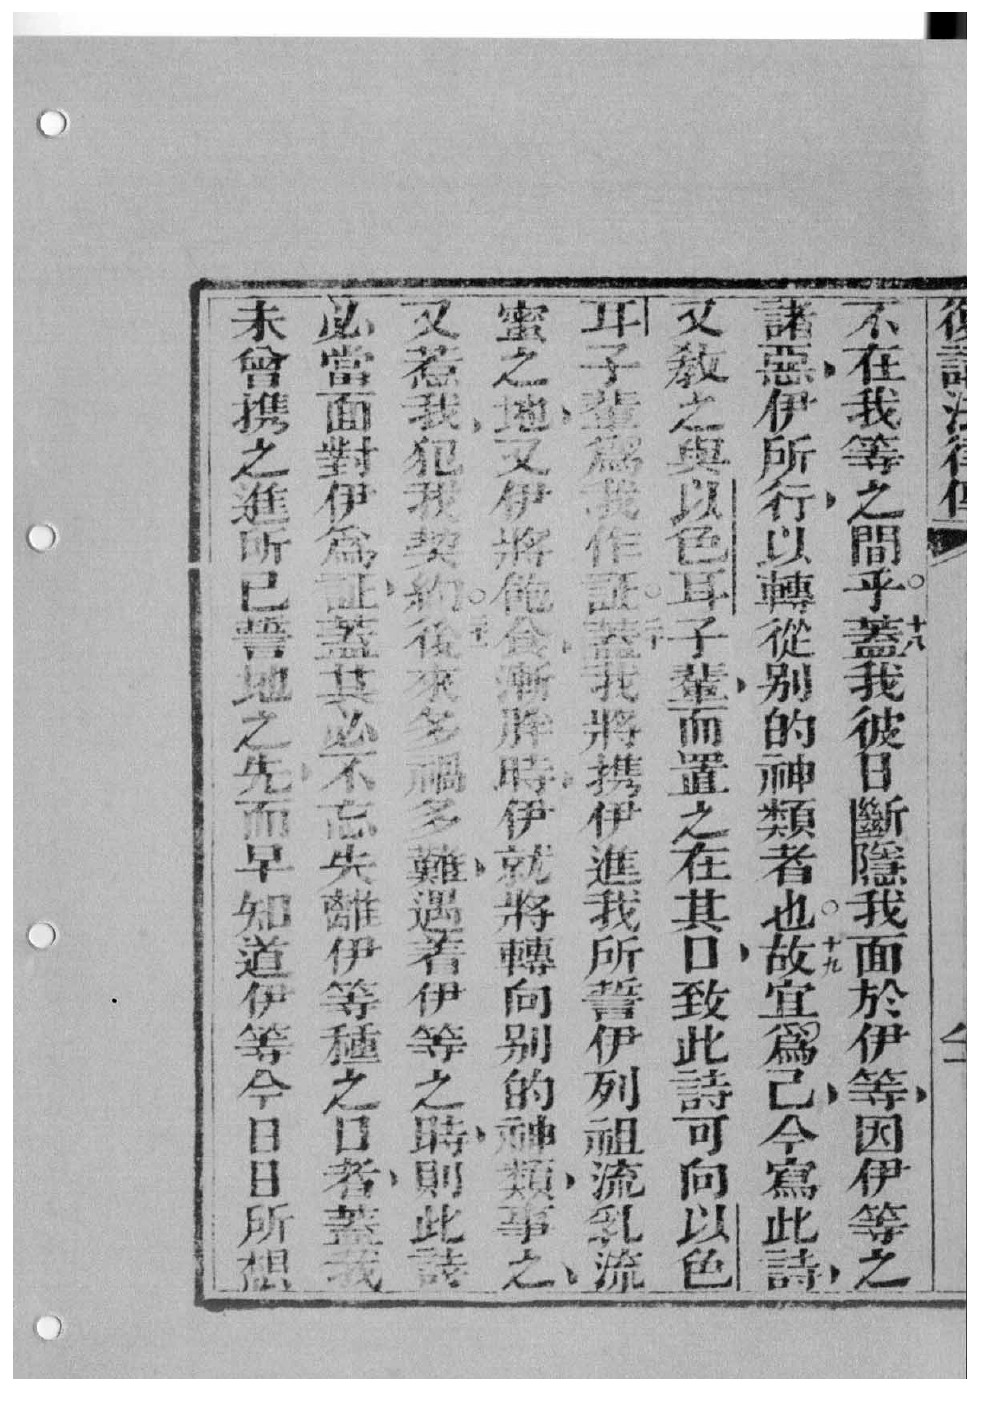 復講法律傳
不在我等之間乎○十八蓋我彼日斷隱我面於伊等因伊等之
諸惡伊所行以轉從别的神類者也○十九故宜爲己今寫此詩
又教之與以色耳子輩而置之在其口致此詩可向以色
耳子輩爲我作証○二十蓋我將携伊進我所誓伊列祖流乳流
蜜之地又伊將飽食漸胖時伊就將轉向别的神類事之
又惹我犯我契約○後來多禍多難遇着伊等之時則此詩
必當面對伊爲証蓋其必不忘失離伊等種之口者蓋我
未曾携之進所已誓地之先而早知道伊等今日日所想